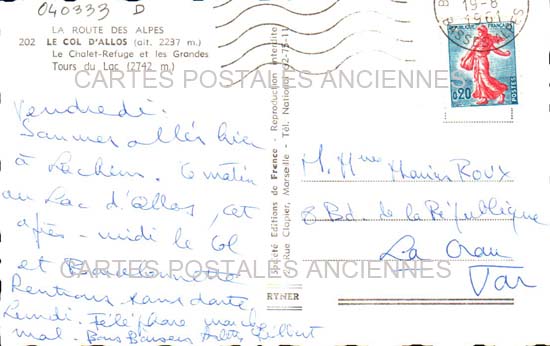 040333 D
LA ROUTE DES ALPES
202 LE COL D'ALLOS (alt. 2237 m.)
Le Chalet-Refuge et les Grandes
Tours du Lac (2742 m.)
CARTES POSTALES ANCIENNES
Vendredi.
Sommes allés hier
à . Ce matin
au Lac d'Allos, cet
après-midi le Col
et Barcelonnette
Rentrons sans doute
Lundi. Téléphone marche
mal. Bons Baisers
Société Editions de France - Reproduction interdite
Rue Clapier, Marseille - Tél. National 62-75-11
RYNER
19-8
1961
BASSES-ALPES
REPUBLIQUE FRANÇAISE
0,20
POSTES
M. Mme ROUX
8 Bd. de la République
La Crau
Var
CARTES POSTALES ANCIENNES